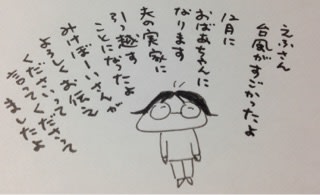 えふさん
台風がすごかったよ
12月に
おばあちゃんに
なります
夫の実家に
引っ越す
ことになったよ
みけぽーいさんが
よろしくお伝え
くださいって
言ってくださって
ましたよ